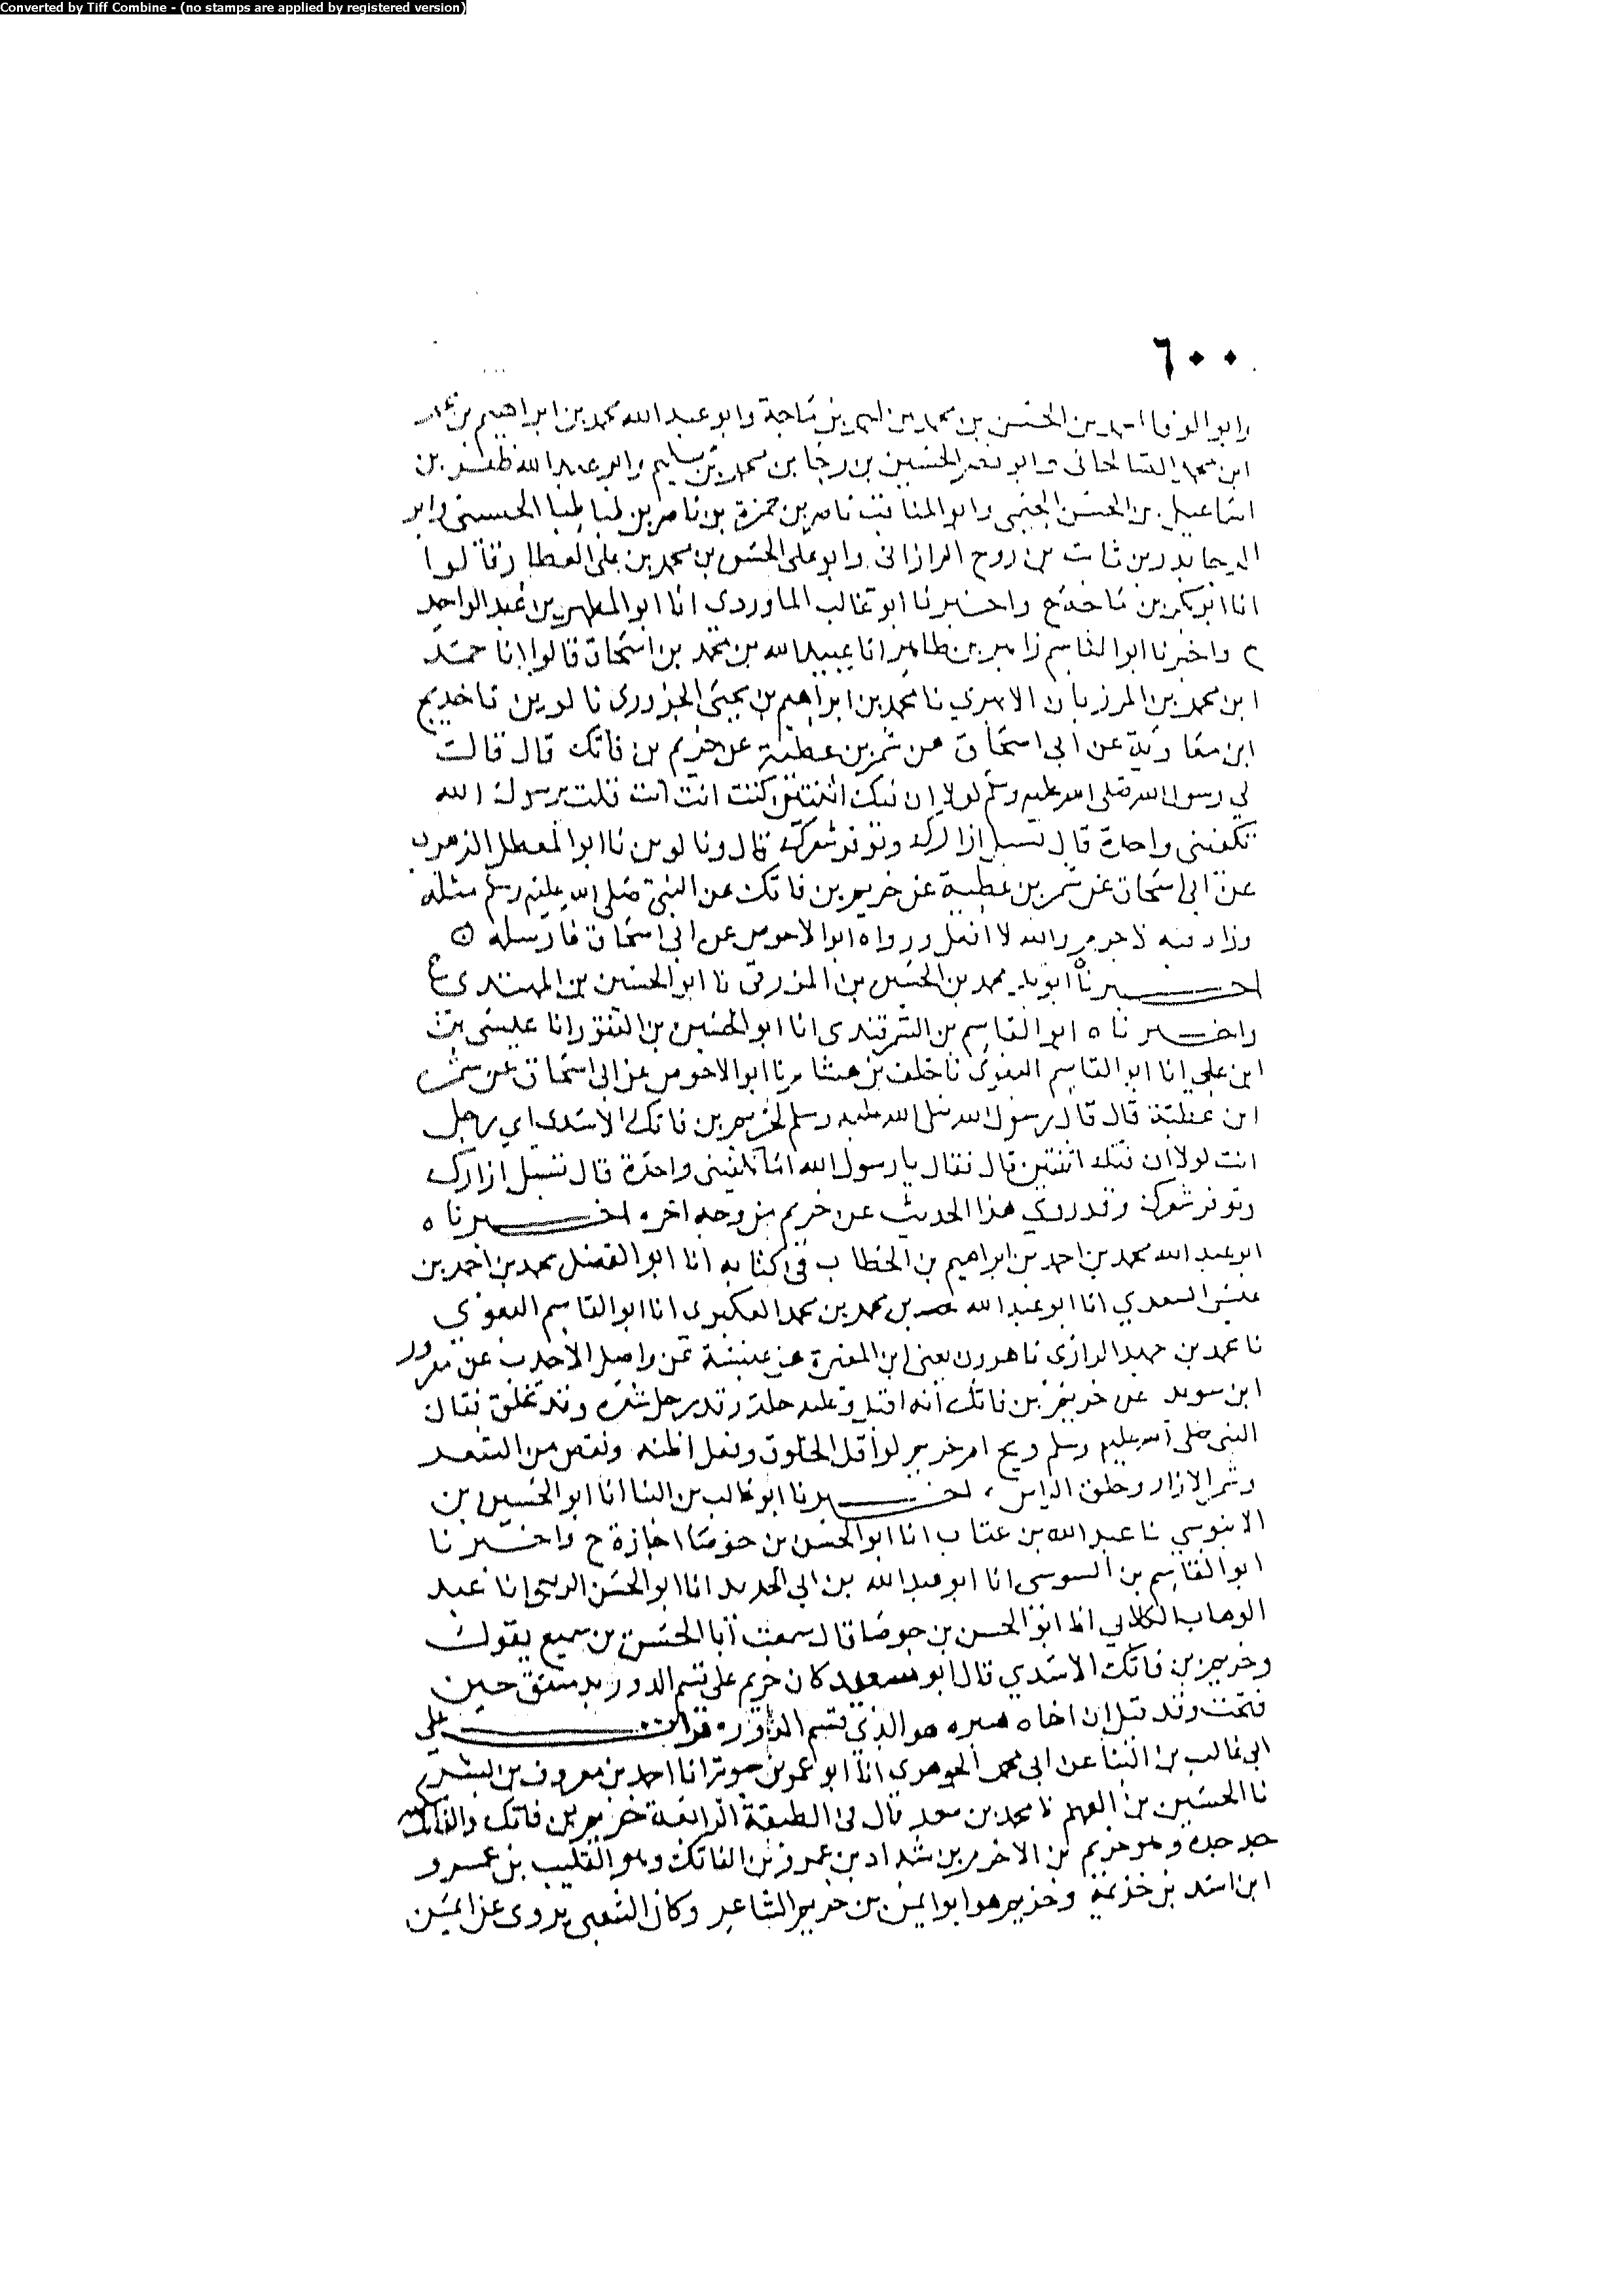 Converted by Tiff Combine - (no stamps are applied by registered version)
٦٠٠
وابو الوفا احمد بن الحسن بن محمد بن ماجة وابو عبد الله محمد بن ابراهيم بن محمد
ابن محمد الصالحانى وابو نصر الحسين بن رجا بن محمد بن سليم وابو عبد الله ظفر بن
اسماعيل بن الحسن وابو المناقب ناصر بن حمزة بن ناصر بن طباطبا الحسنى وابو
الرجا بدر بن ثابت بن روح الرازانى وابو على الحسن بن محمد بن على العطار قالوا
انا ابو بكر بن ماجة ح واخبرنا ابو غالب الماوردى انا ابو المطهر بن عبد الواحد
ح واخبرنا ابو القاسم زاهر بن طاهر انا عبيد الله بن محمد بن اسحاق قالوا انا احمد
ابن محمد بن المرزبان الابهري نا محمد بن ابراهيم بن يحيى الجزورى نا لوين نا خديج
ابن معاوية عن ابى اسحاق عن شمر بن عطية عن خريم بن فاتك قال قالت
لي رسول الله صلى الله عليه وسلم لولا ان فيك اثنتين كنت انت انت قلت يرسول الله
تكفينى واحدة قال تسبل ازارك وتوفر شعرك قال ونا لوين نا ابو المعطل الزهرى
عن ابى اسحاق عن شمر بن عطية عن خريم بن فاتك عن النبى صلى الله عليه وسلم مثله
وزاد فيه لا جرم والله لا افعل ورواه ابو الاحوص عن ابى اسحاق فارسله
اخبرنا ابو بكر محمد بن الحسين بن المزرفى نا ابو الحسين بن المهتدى ح
واخبرناه ابو القاسم بن السمرقندى انا ابو الحسين بن النقور انا عيسى بن
ابن على انا ابو القاسم البغوى نا خلف بن هشام نا ابو الاحوص عن ابى اسحاق عن شمر
ابن عطية قال قال رسول الله صلى الله عليه وسلم لخريم بن فاتك الاسدى اي رجل
انت لولا ان فيك اثنتين قال فقال يا رسول الله انما تكفينى واحدة قال تسبل ازارك
وتوفر شعرك وقد روي هذا الحديث عن خريم من وجه اخر اخبرناه
ابو عبد الله محمد بن احمد بن ابراهيم بن الخطاب فى كتابه انا ابو الفضل محمد بن احمد بن
عيسى السعدي انا ابو عبد الله بن محمد بن محمد العكبرى انا ابو القاسم البغوي
نا محمد بن حميد الرازى نا هرون يعنى ابن المغيرة عن عنبسة عن واصل الاحدب عن معرور
ابن سويد عن خريم بن فاتك انه اقبل وعليه حلة وقد رجل شعره وقد تخلق فقال
النبى صلى الله عليه وسلم ويح خريم لو اقل الخلوق ونقص من الشعر
وشمر الازار وحلق الراس اخبرنا ابو غالب بن البنا انا ابو الحسين بن
الابنوسي نا عبد الله بن عتاب انا ابو الحسن بن جوصا اجازة ح واخبرنا
ابو القاسم بن السوسى انا ابو عبد الله بن ابى الحديد انا ابو الحسن الربعى انا عبد
الوهاب الكلابي انا ابو الحسن بن جوصا قال سمعت ابا الحسن بن سميع يقول
وخريم بن فاتك الاسدي قال ابو سعيد كان خريم على قسم الدور بدمشق حين
فتحت وقد قيل ان اخاه سبره هو الذي قسم الدور قرات على
ابى غالب بن البنا عن ابى محمد الجوهرى انا ابو عمر بن حيوية انا احمد بن معروف بن
نا الحسين بن الفهم نا محمد بن سعد قال فى الطبقة الرابعة خريم بن فاتك والفاتك
جد جده وهو خريم بن الاخرم بن شداد بن عمرو بن الفاتك وهو القليب بن عمرو
ابن اسد بن خزيمة وخريم هو ابو ايمن بن خريم الشاعر وكان الشعبى يروى عن ايمن